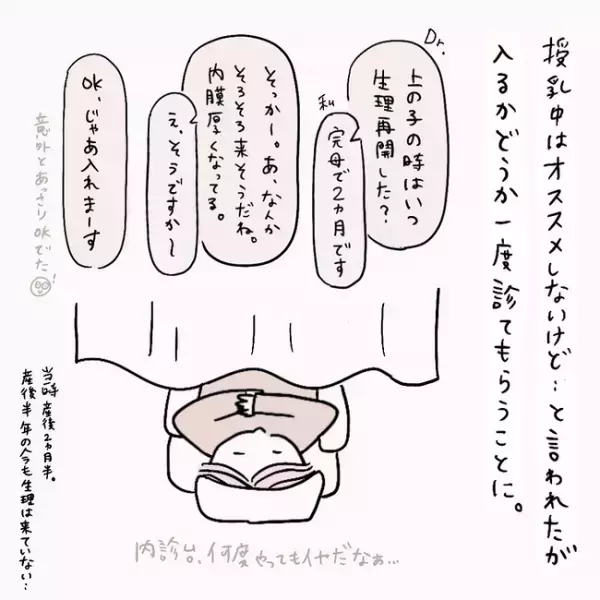 授乳中はオススメしないけど…と言われたが
入るかどうか一度診てもらうことに。
Dr.
上の子の時はいつ
生理再開した?
私
完母で2ヵ月です
そっかー。あ、なんか
そろそろ来そうだね。
内膜厚くなってる。
え、そうですか〜
OK、じゃあ入れまーす
意外とあっさりOKでた!
当時産後2ヵ月半。
産後半年の今も生理は来ていない…
内診台、何度やってもイヤだなぁ…